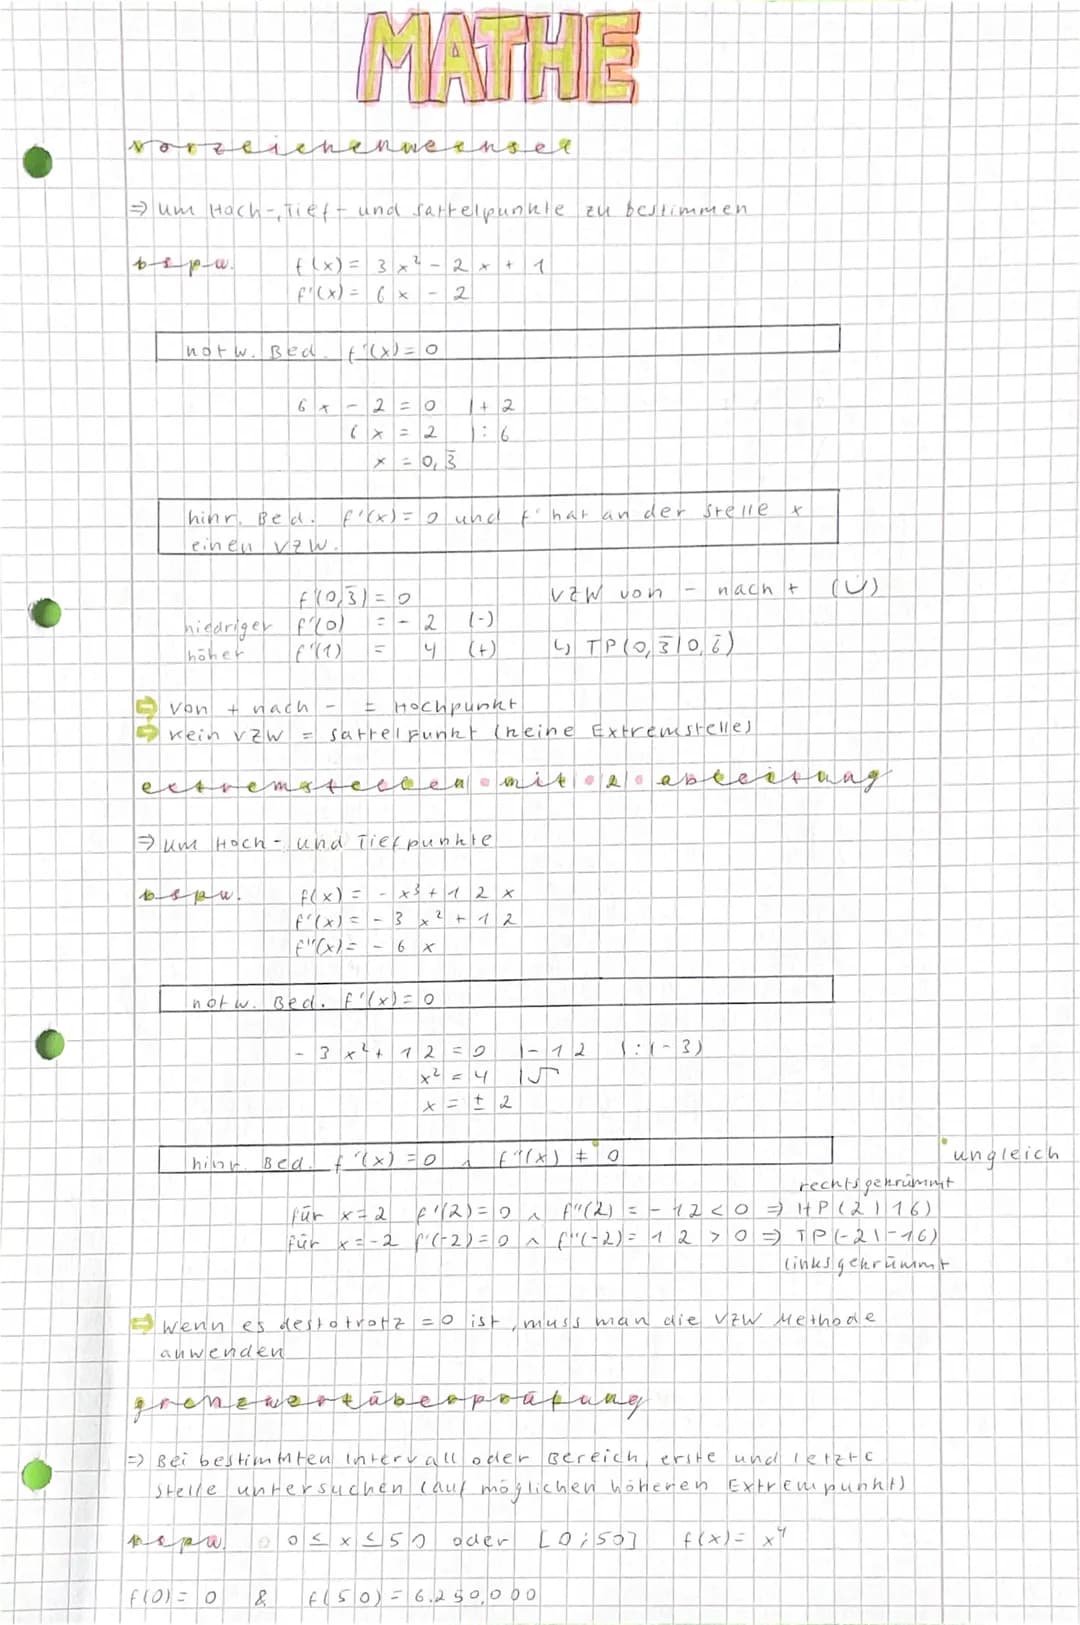 MATHE
vorzeichenwechsel
⇒ um Hoch-, Tief- und Sattelpunkte zu bestimmen
bspw. f(x) = 3x² - 2x + 1
f'(x) = 6x - 2
notw. Bed. f'(x) = 0
6x - 2 = 0 |+2
6x = 2 |:6
x = 0,3̅
hinr. Bed. f'(x) = 0 und f' hat an der Stelle x
einen VZW.
f'(0,3̅) = 0 VZW von - nach + (Ü)
niedriger f'(0) = -2 (-)
höher f'(1) = 4 (+) ↳ TP(0,3̅|0,6̅)
⇒ von + nach - = Hochpunkt
⇒ kein VZW = Sattelpunkt (keine Extremstelle)
extremstellen • mit • 2 • ableitung
⇒ um Hoch- und Tiefpunkte
bspw. f(x) = -x³ + 12x
f'(x) = -3x² + 12
f''(x) = -6x
notw. Bed. f'(x) = 0
-3x² + 12 = 0 |-12 |:(-3)
x² = 4 |√
x = ± 2
hinr. Bed. f'(x) = 0 ∧ f''(x) ≠ 0 ungleich
rechtsgekrümmt
für x=2 f'(2) = 0 ∧ f''(2) = -12 < 0 ⇒ HP(2|16)
für x=-2 f'(-2) = 0 ∧ f''(-2) = 12 > 0 ⇒ TP(-2|-16)
linksgekrümmt
⇒ Wenn es destotrotz = 0 ist, muss man die VZW Methode
anwenden
grenzwertüberprüfung
⇒ Bei bestimmten Intervall oder Bereich, erste und letzte
Stelle untersuchen (auf möglichen höheren Extrempunkt)
bspw. 0 ≤ x ≤ 50 oder [0;50] f(x) = x⁴
f(0) = 0 & f(50) = 6.250,000